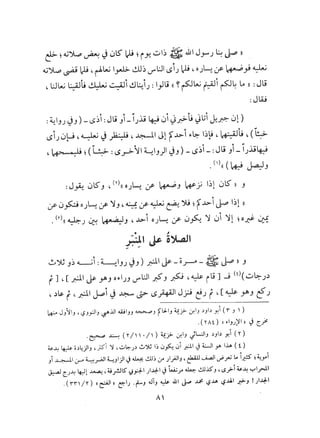 « صلى بنا رسول الله ﷺ ذات يوم؛ فلما كان في بعض صلاته؛ خلع
نعليه فوضعهما عن يساره، فلما رأى الناس ذلك خلعوا نعالهم، فلما قضى صلاته
قال: « ما بالكم ألقيتم نعالكم؟» قالوا: رأيناك ألقيت نعليك فألقينا نعالنا،
فقال:
(إن جبريل أتاني فأخبرني أن فيها قذراً - أو قال: أذى - (وفي رواية:
خبثاً)، فألقيتهما، فإذا جاء أحدكم إلى المسجد، فلينظر في نعليه، فإن رأى
فيها قذراً - أو قال: - أذى - (وفي الرواية الأخرى: خبثاً)؛ فليمسحهما،
وليصل فيهما) (١).
و « كان إذا نزعهما وضعهما عن يساره» (٢)، وكان يقول:
« إذا صلى أحدكم؛ فلا يضع نعليه عن يمينه، ولا عن يساره؛ فتكون عن
يمين غيره؛ إلا أن لا يكون عن يساره أحد، وليضعهما بين رجليه» (٣).
الصلاة على المنبر
و « صلى ﷺ - مرة - على المنبر (وفي رواية: أنه ذو ثلاث
درجات) (٤) فـ [قام عليه، فكبر وكبر الناس وراءه وهو على المنبر]، [ثم
ركع وهو عليه]، ثم رفع فنزل القهقرى حتى سجد في أصل المنبر، ثم عاد،
(١ و ٣) أبو داود وابن خزيمة والحاكم وصححه ووافقه الذهبي والنووي، والأول منهما
مخرج في «الإرواء» (٢٨٤).
(٢) أبو داود والنسائي وابن خزيمة (١/١١٠/٢) بسند صحيح.
(٤) هذا هو السنة في المنبر أن يكون ذا ثلاث درجات، لا أكثر، والزيادة عليها بدعة
أموية، كثيراً ما تعرض الصف للقطع، والفرار من ذلك بجعله في الزاوية الغربية من المسجد أو
المحراب بدعة أخرى، وكذلك جعله مرتفعاً في الجدار الجنوبي كالشرفة، يصعد إليها بدرج لصيق
الجدار! وخير الهدي هدي محمد صلى الله عليه وآله وسلم. راجع «الفتح» (٣٣١/٢).
٨١